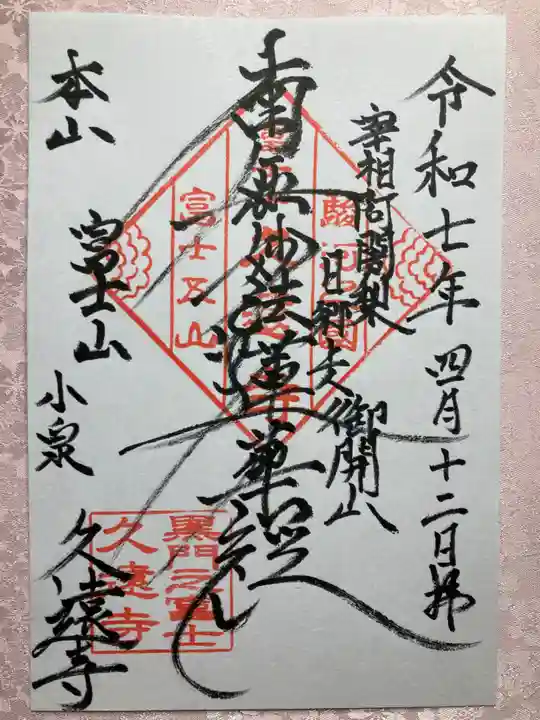 令和七年四月十二日拝
宰相阿闍梨
日郷
御開山
南無妙法蓮華経
駿河
富士五山
本山
富士山
小泉
久遠寺
黒門之富士
久遠寺